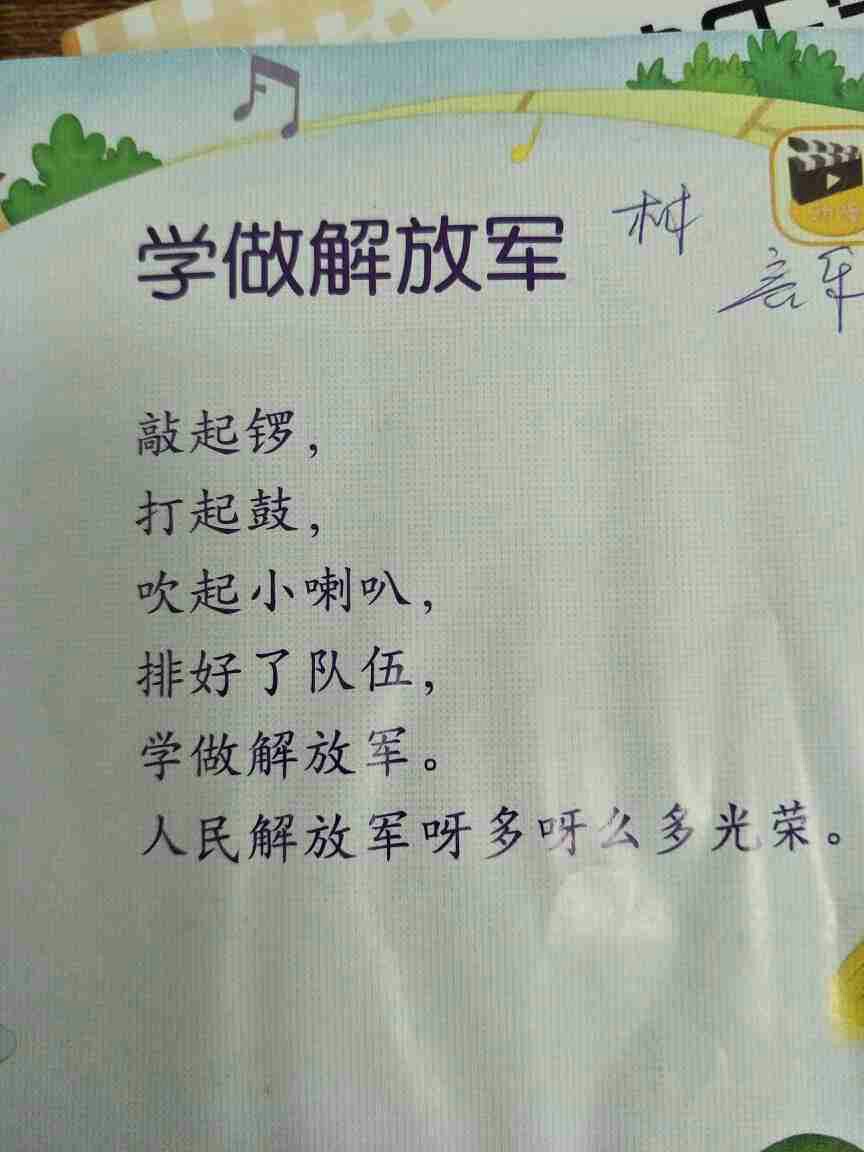 学做解放军
音乐
敲起锣，
打起鼓，
吹起小喇叭，
排好了队伍，
学做解放军。
人民解放军呀多呀么多光荣。